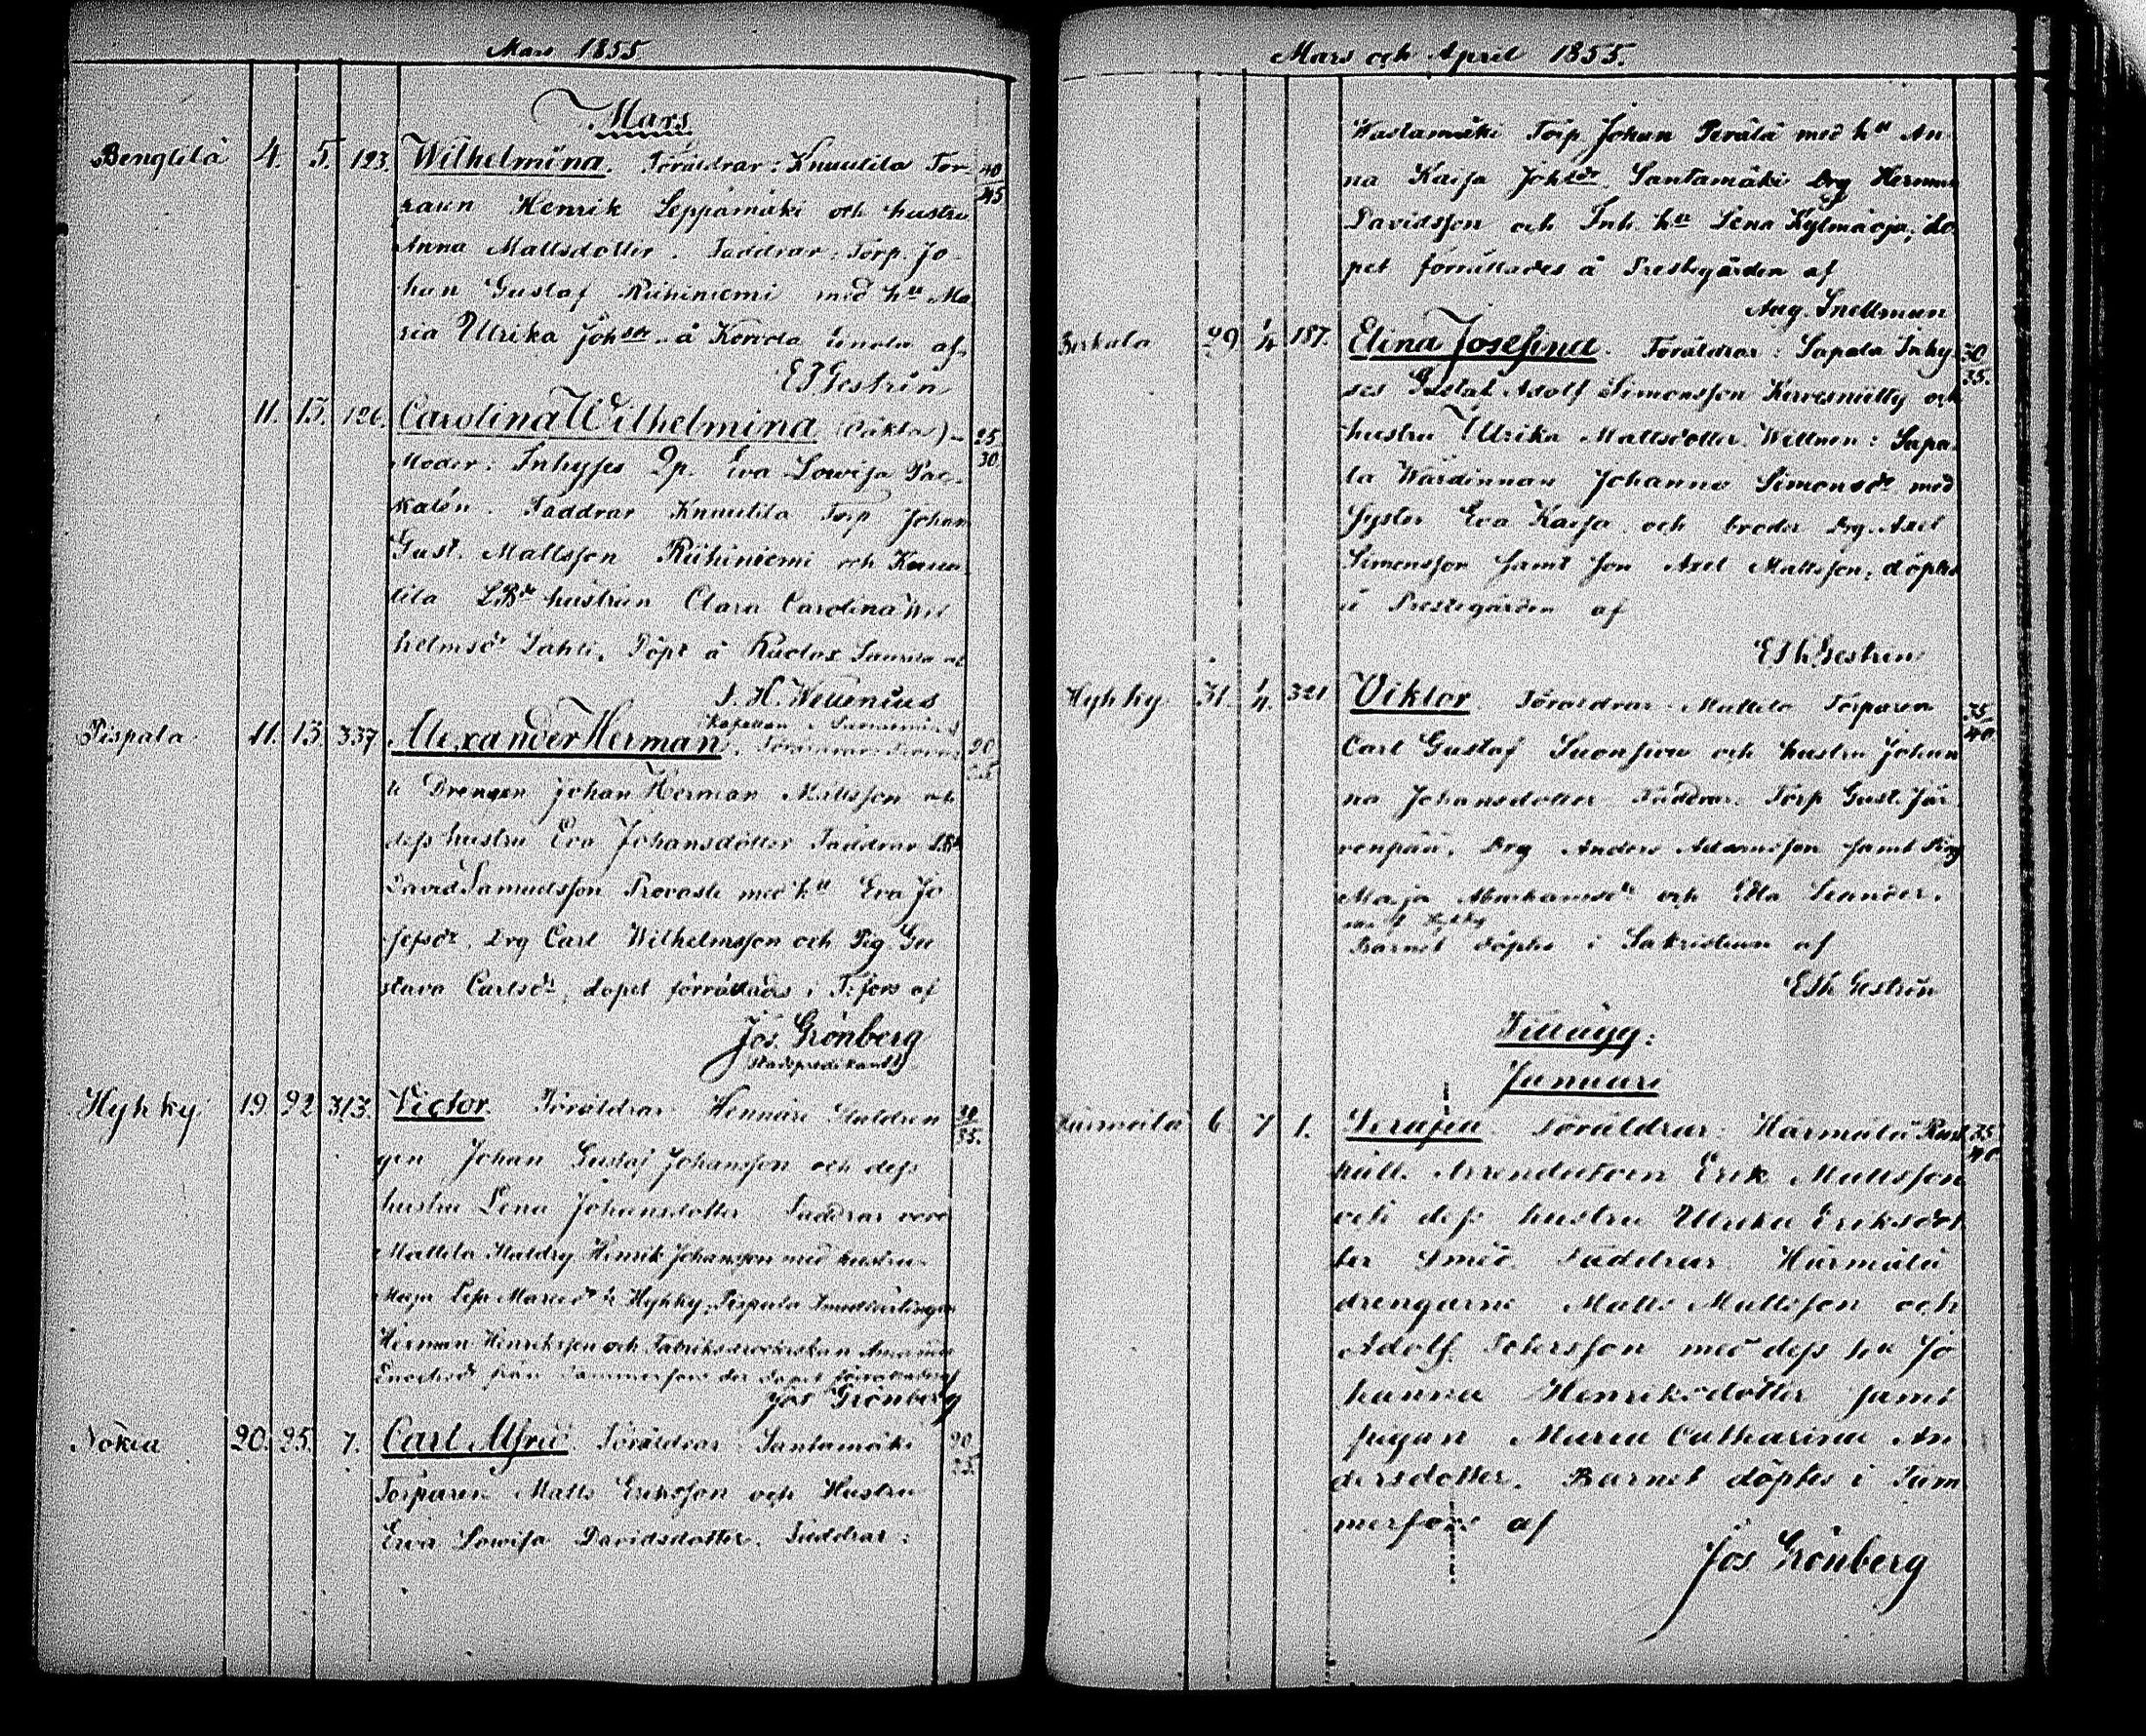 Mars 1855
Mars
Bengtilä 4. 5. 123. Wilhelmina. Föräldrar: Knuutila Tor- 40
raren Henrik Leppämäki och hustru 45
Anna Mattsdotter. Faddrar: Torp. Jo-
han Gustaf Riihiniemi med hu Ma-
ria Ulrika Johsdr å af
E T Gestrin
11. 15. 126. Carolina Wilhelmina (oäkta) 25
Moder: Inhyses Qp. Eva Lowisa Pac- 30
kalén. Faddrar Knuutila Torp Johan
Gust. Mattsson Riihiniemi och Knuu-
tila hustrun Clara Carolina Wil
helmsdr Lahti. Döpt å af
J. H. Wellenius
Kapellan i
Pispala 11. 13. 337 Alexander Herman. Föräldrar: 20
Drengen Johan Herman Mattsson och
dess hustru Eva Johansdotter Faddrar
David Samuelsson Provasti med hu Eva Jo
sefsdr, Drg Carl Wilhelmsson och Pig Gu
stava Carlsdr, dopet förrättades i T:fors af
Jos. Grönberg
Stadspredikant
Hyhky 19 22 313. Victor. Föräldrar Hennäri Staldren 30
gen Johan Gustaf Johansson och dess 35.
hustru Lena Johansdotter Faddrar voro
Mattila Staldrg Henrik Johansson med hustru
Maja Lisa Hyhky, Pispala
Herman Henriksson och
från Tammerfors der dopet förrättades af
Jos Grönberg
Nokia 20. 25. 7. Carl Alfred. Föräldrar: Santamäki 20
Torparen Matts Eriksson och Hustru 25.
Eva Lowisa Davidsdotter. Faddrar:
Mars och April 1855.
Wastamäki Torp Johan Perälä med hu An-
na Kaisa Johsdr. Santamäki Drg Herman
Davidsson och Inh. hu Lena Kylmäoja; do
pet förrättades å Prestegården af
Aug. Snellman
Birkala 29 1/4 187. Elina Josefina. Föräldrar: Sapala Inhy- 30
ses Gustaf Adolf Simonsson Kervesniitty och 35.
hustru Ulrika Mattsdotter. Wittnen: Sapa-
la Wärdinnan Johanna Simonsdr med
syster Eva Kaisa och broder Drg. Axel
Simonsson samt son Axel Mattsson, döptes
å Prestegården af
E Th Gestrin
Hyhky 31. 1/4. 321 Viktor Föräldrar: Mattila Torparen 35
Carl Gustaf Suonsivu och hustru Johan 40
na Johansdotter Faddrar: Torp Gust. Jär
venpää, Drg Anders Adamsson samt Pig
Maja Abrahamsdr och Edla Leander.
Barnet döptes i Sakristian af
E Th Gestrin
Tillägg:
Januari
Härmälä 6. 7 1. Serafia. Föräldrar: Härmälä Rust 35
håll. Arrendatorn Erik Mattsson 40
och dess hustru Ulrika Eriksdot
ter Smed. Faddrar Härmälä
drengarne Matts Mattsson och
Adolf Petersson med dess hu Jo
hanna Henriksdotter samt
pigan Maria Catharina An
dersdotter. Barnet döptes i Tam
merfors af
Jos Grönberg